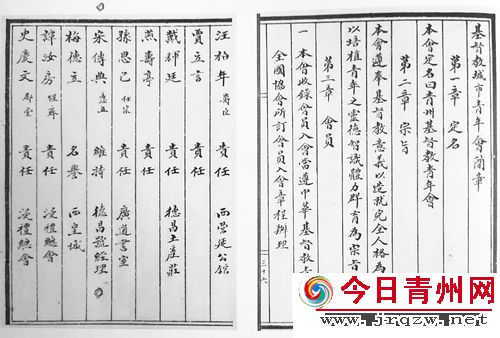 基督教城市青年會簡章
第一章 定名
本會定名曰青州基督教青年會
第二章 宗旨
本會遵奉基督教意義以造就完全人格為
以培植青年之靈德智識體力群育為宗旨
第三章 會員
一 本會收錄會員入會當遵中華基督教青
全國協會所訂會員入會章程辦理
三十六
汪柏年 責任
賈立言 責任
戴 廷 責任 德昌玉產莊
燕壽亭 責任
孫思己 責任 廣道書室
宋傳典 維持 德昌號經理
梅德立 名譽 西皇城
譚汝房 責任 浸禮總會
史慶文 責任 浸禮總會
今日青州网
www.jrqzw.net